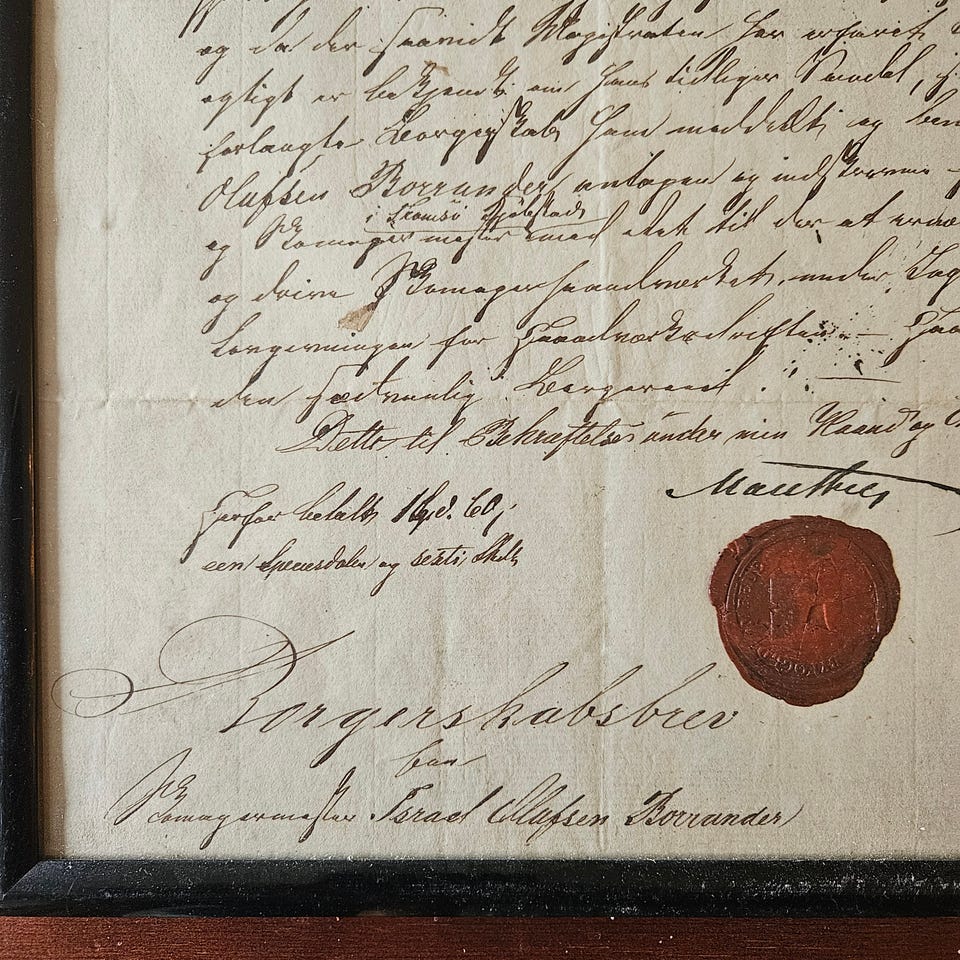 og da der saavidt Magistraten har erfaret
agtigt er bekjendt om hans tidligere Vandel,
forlangte Borgerskab ham meddelt og
Olafsen Borrander, antagen og indskreven
i Tromsö Kjöbstad
og Skomagermester med Ret til der at
og drive Skomagerhaandværket, under
Lovgivningen for Haandværksdriften. —
den sædvanlig Borgereed.
Dette til Bekræftelse under min Haand og
Mauthey
Herfor betalt 1 Spd. 60 s
een Speciesdaler og sexti Skill
Borgerskabsbrev
for
Skomagermester Israel Olafsen Borrander